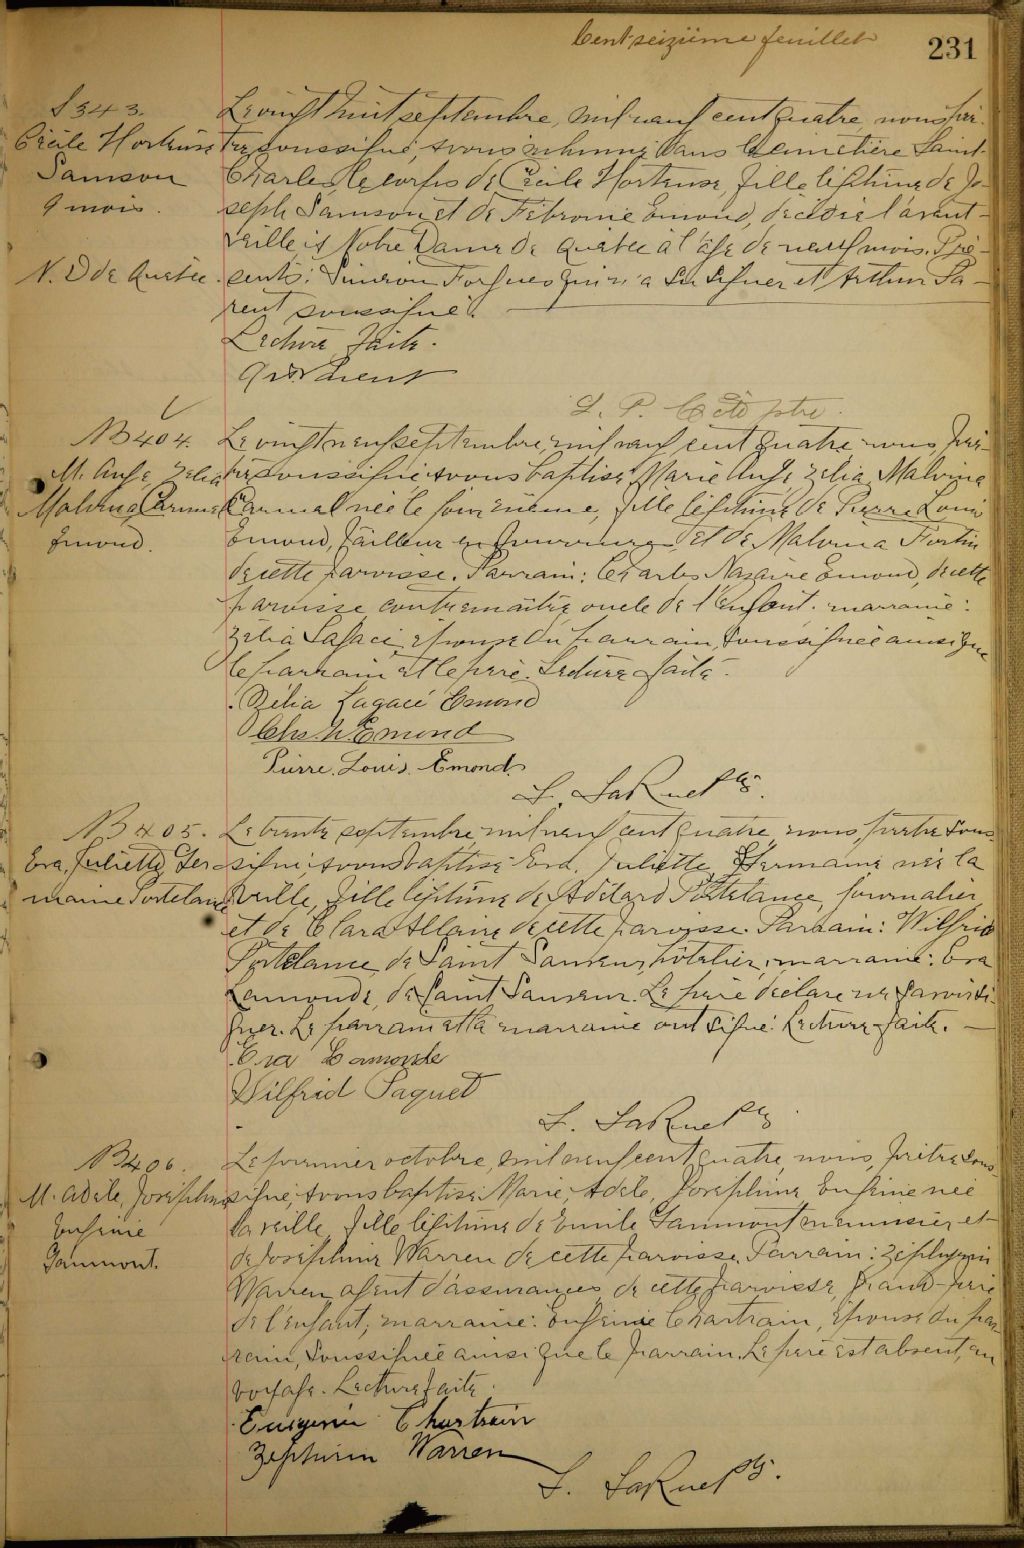 Cent seizième feuillet
231
S 343.
Cécile Hortense
Samson
9 mois.
N. D de Québec.
Le vingt huit septembre, mil neuf cent quatre, nous prê-
tre soussigné, avons inhumé dans le cimetière Saint-
Charles, le corps de Cécile Hortense, fille légitime de Jo-
seph Samson et de Fébronie Emond, décédée l'avant-
veille à Notre Dame de Québec à l'âge de neuf mois. Pré-
sents: Siméon Forgues qui n'a su signer et Arthur Pa-
rent soussigné.
Lecture faite.
Art Parent
L. P. Côté ptre.
B 404.
M. Ange Zelia
Malvina Carmel
Emond.
Le vingt neuf septembre, mil neuf cent quatre, nous, prê-
tre soussigné avons baptisé Marie Ange Zélia Malvina
Carmel née le jour même, fille légitime de Pierre Louis
Emond, tailleur en fourrures, et de Malvina Fortin
de cette paroisse. Parrain: Charles Nazaire Emond, de cette
paroisse, contremaître, oncle de l'enfant. marraine:
Zélia Lagacé, épouse du parrain, soussignée ainsi que
le parrain et le père. Lecture faite.
Zélia Lagacé Emond
Chs. N. Emond
Pierre Louis Emond
L. LaRue Ptre.
B 405.
Eva, Juliette, Ger-
maine Portelance
Le trente septembre, mil neuf cent quatre, nous, prêtre sous-
signé, avons baptisé Eva, Juliette, Germaine, née la
veille, fille légitime de Adélard Portelance, journalier
et de Clara Allaire de cette paroisse. Parrain: Wilfrid
Portelance, de Saint Sauveur, hôtelier, marraine: Eva
Lamonde, de Saint Sauveur. Le père déclare ne savoir si-
gner. Le parrain et la marraine ont signé. Lecture faite.
Eva Lamonde
Wilfrid Paquet
L. LaRue Ptre
B 406.
M. Adèle, Joséphine
Eugénie
Le premier octobre, mil neuf cent quatre, nous, prêtre sous-
signé, avons baptisé Marie, Adèle, Joséphine Eugénie née
la veille, fille légitime de Emile menuisier et
de Joséphine Warren de cette paroisse. Parrain: Zéphirin
Warren, agent d'assurances, de cette paroisse, grand-père
de l'enfant; marraine: Eugénie Chartrain, épouse du par-
rain, soussignée ainsi que le parrain. Le père est absent, en
voyage. Lecture faite.
Eugénie Chartrain
Zéphirin Warren
L. LaRue Ptre.